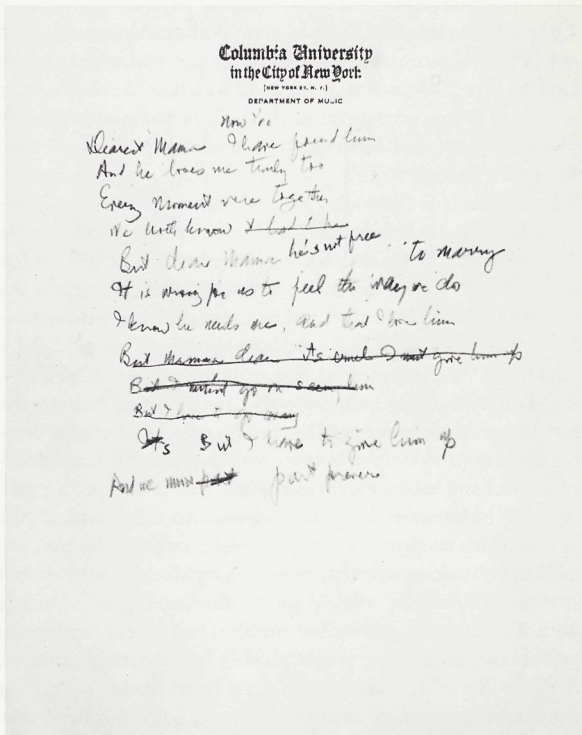 Columbia University
in the City of New York
[NEW YORK 27, N. Y.]
DEPARTMENT OF MUSIC
Now I've
Dearest Mama I have found him
And he loves me truly too
Every moment we're together
We both know
But dear Mama he's not free to marry
It is wrong for us to feel the way we do
I know he needs me, and that I love him
But Mamma dear it's cruel I must give him up
But I mustn't go on seeing him
But I have to go away
It's But I have to give him up
And we must part part forever